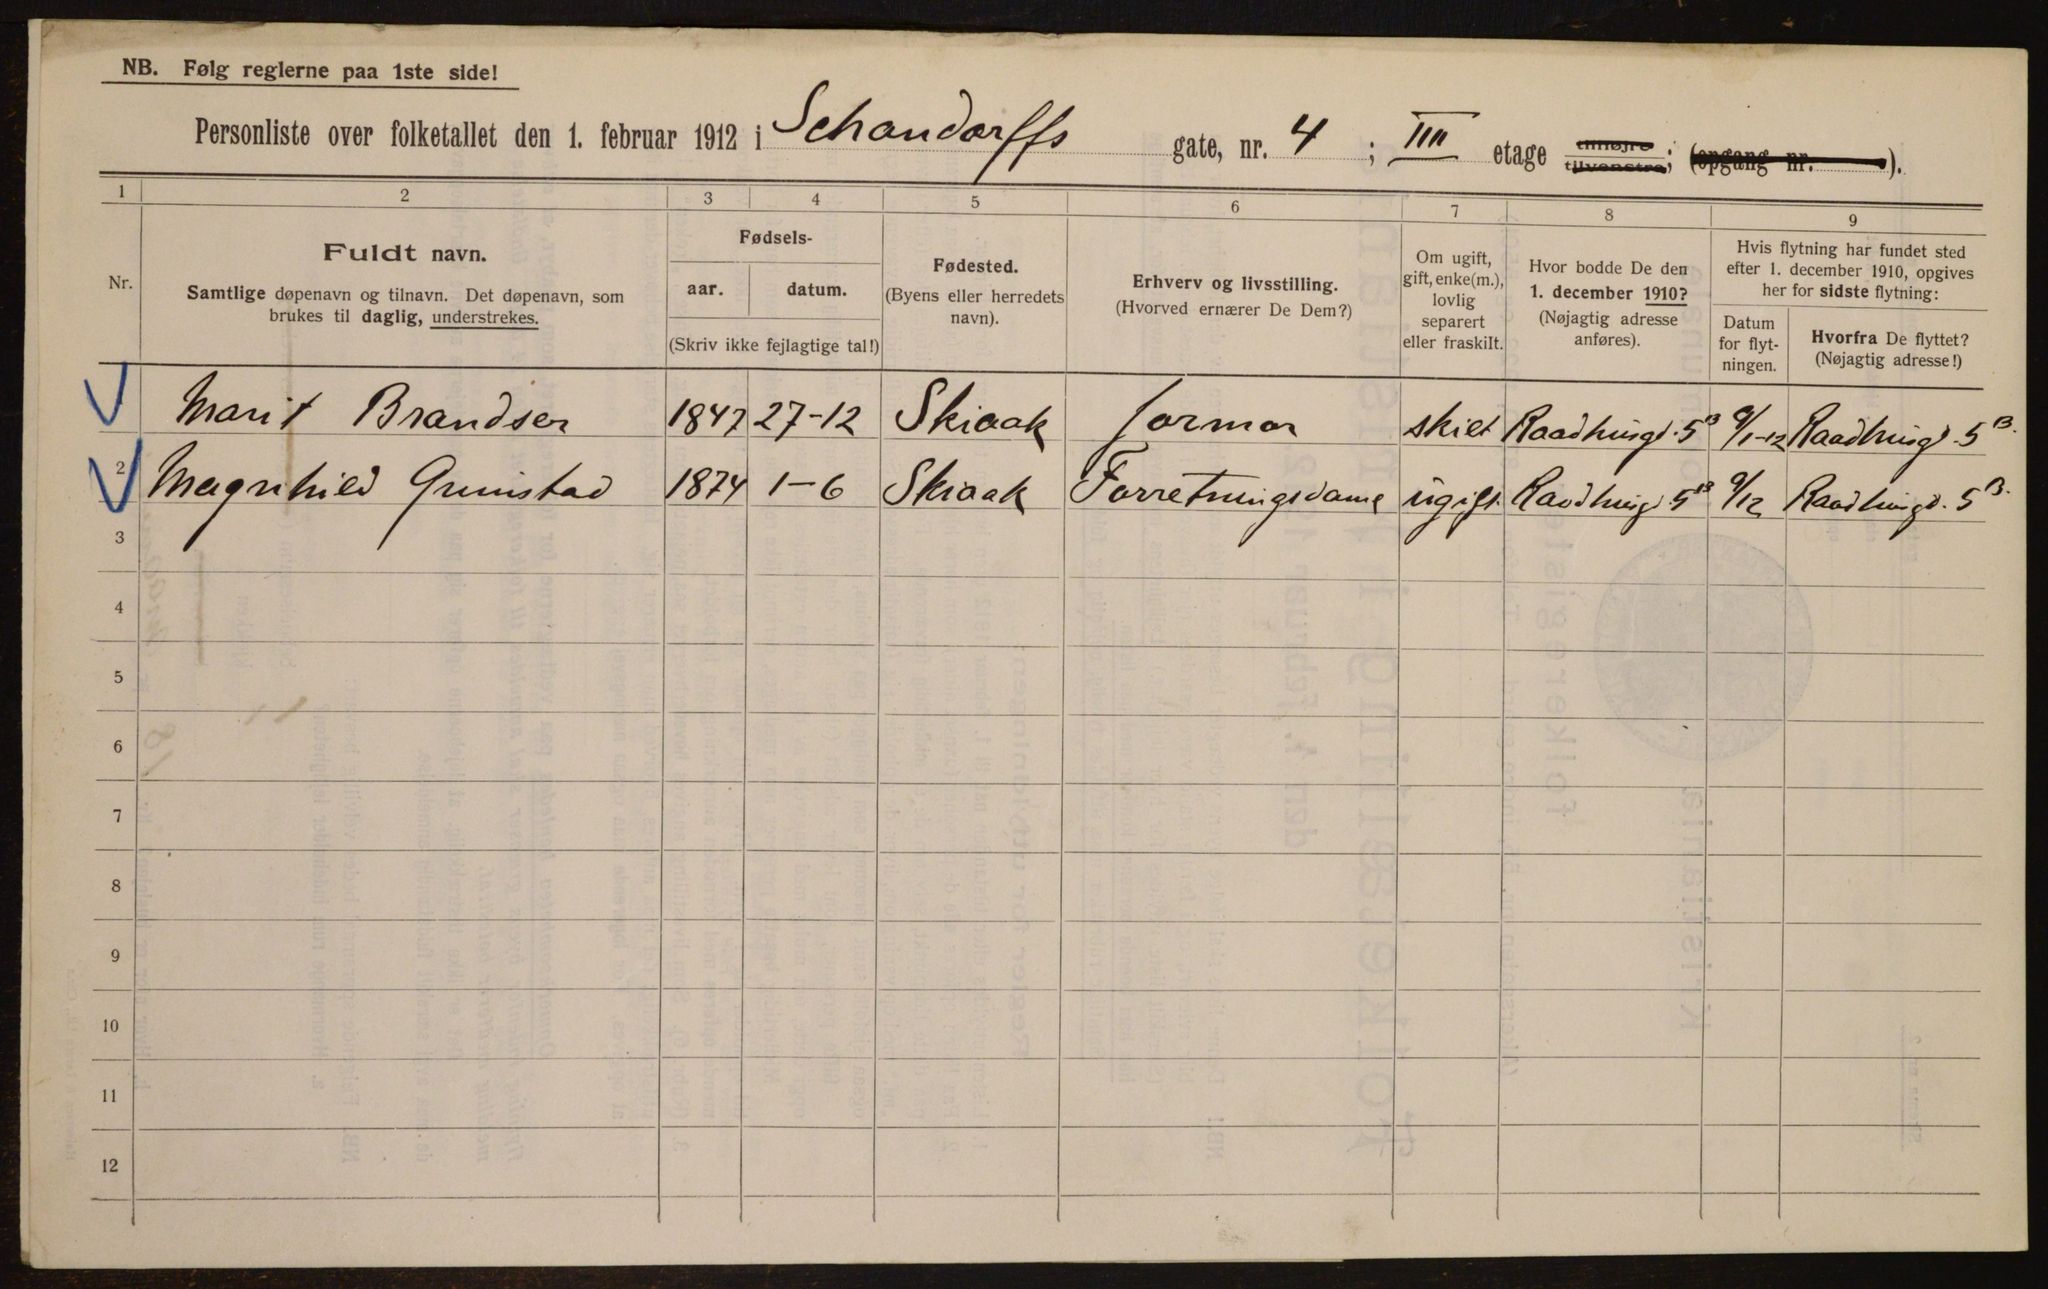 NB. Følg reglerne paa 1ste side!
Personliste over folketallet den 1. februar 1912 i Schandorffs gate, nr. 4 ; IIII etage tilhøjre tilvenstre; (opgang nr. ).
1 2 3 4 5 6 7 8 9
Nr.
Fuldt navn.
Samtlige døpenavn og tilnavn. Det døpenavn, som
brukes til daglig, understrekes.
Fødsels-
aar. datum.
(Skriv ikke fejlagtige tal!)
Fødested.
(Byens eller herredets
navn).
Erhverv og livsstilling.
(Hvorved ernærer De Dem?)
Om ugift,
gift, enke(m.),
lovlig
separert
eller fraskilt.
Hvor bodde De den
1. december 1910?
(Nøjagtig adresse
anføres).
Hvis flytning har fundet sted
efter 1. december 1910, opgives
her for sidste flytning:
Datum
for flyt-
ningen.
Hvorfra De flyttet?
(Nøjagtig adresse!)
Marit Brandser 1847 27-12 Skiaak Jormor skilt Raadhusgd. 5 B 9/1-12 Raadhusgd. 5 B.
2 Magnhild Grimstad 1874 1-6 Skiaak Forretningsdame ugift Raadhusgd. 5 B 9/12 Raadhusgd. 5 B.
3
4
5
6
7
8
9
10
11
12